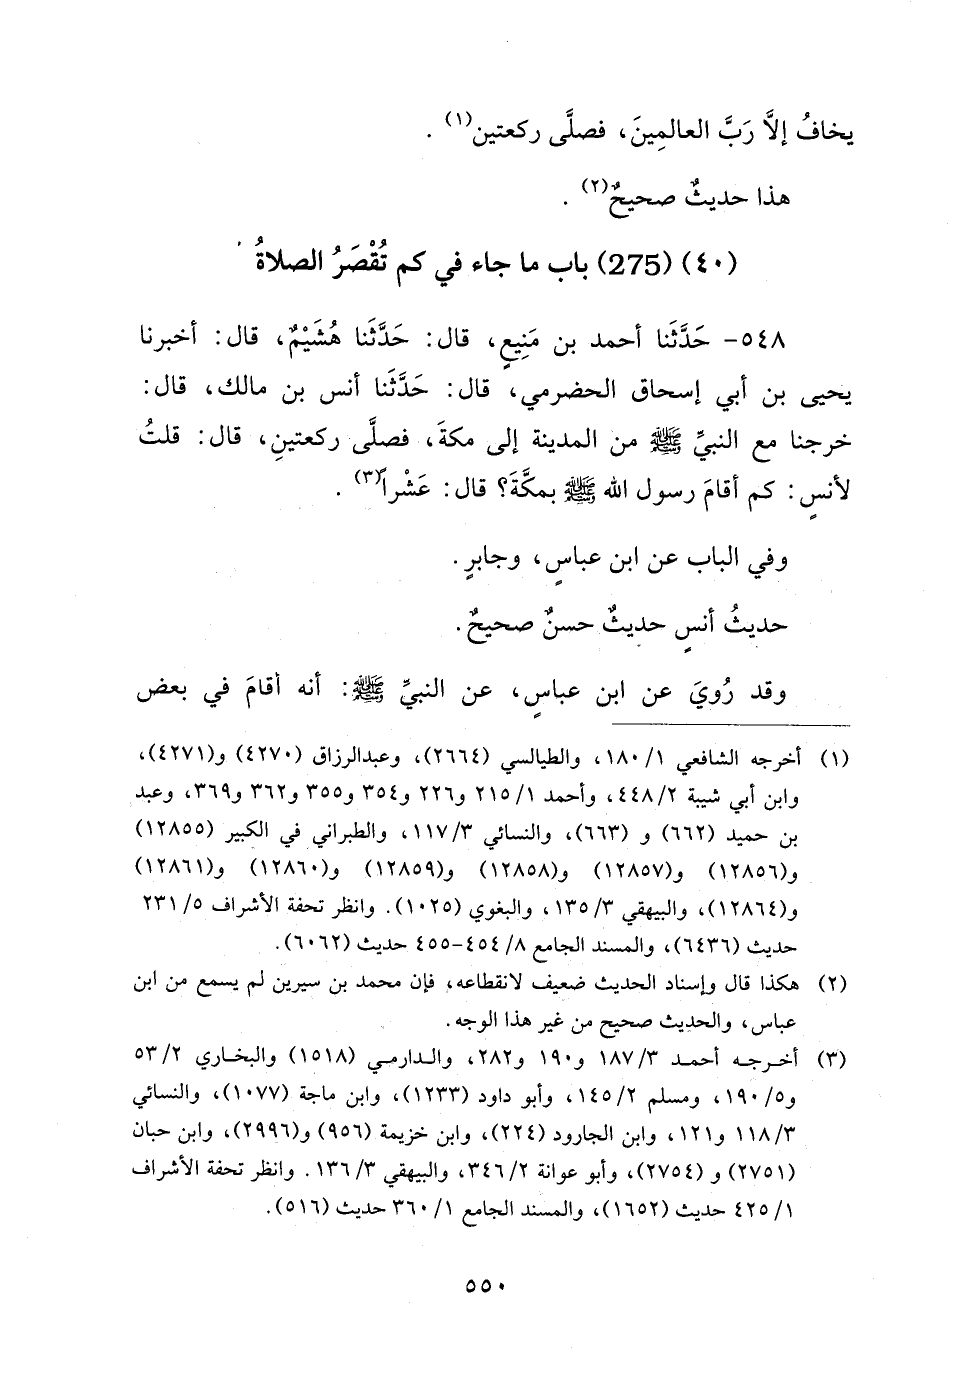 يخافُ إلاَّ رَبَّ العالمِينَ، فصلَّى ركعتين(١) .
هذا حديثٌ صحيحٌ(٢) .
(٤٠) (275) باب ما جاء في كم تُقْصَرُ الصلاةُ
٥٤٨- حَدَّثَنا أحمد بن مَنِيعٍ، قال: حَدَّثَنا هُشَيْمٌ، قال: أخبرنا
يحيى بن أبي إسحاق الحضرمي، قال: حَدَّثَنا أنس بن مالك، قال:
خرجنا مع النبيِّ ﷺ من المدينة إلى مكةَ، فصلَّى ركعتينِ، قال: قلتُ
لأنسٍ: كم أقامَ رسول الله ﷺ بمكَّةَ؟ قال: عَشْراً(٣) .
وفي الباب عن ابن عباسٍ، وجابرٍ.
حديثُ أنسٍ حديثٌ حسنٌ صحيحٌ.
وقد رُويَ عن ابن عباسٍ، عن النبيِّ ﷺ: أنه أقامَ في بعض
(١) أخرجه الشافعي ١/ ١٨٠، والطيالسي (٢٦٦٤)، وعبدالرزاق (٤٢٧٠) و(٤٢٧١)،
وابن أبي شيبة ٢/ ٤٤٨، وأحمد ١/ ٢١٥ و٢٢٦ و٣٥٤ و٣٥٥ و٣٦٢ و٣٦٩، وعبد
بن حميد (٦٦٢) و (٦٦٣)، والنسائي ٣/ ١١٧، والطبراني في الكبير (١٢٨٥٥)
و(١٢٨٥٦) و(١٢٨٥٧) و(١٢٨٥٨) و(١٢٨٥٩) و(١٢٨٦٠) و(١٢٨٦١)
و(١٢٨٦٤)، والبيهقي ٣/ ١٣٥، والبغوي (١٠٢٥). وانظر تحفة الأشراف ٥/ ٢٣١
حديث (٦٤٣٦)، والمسند الجامع ٨/ ٤٥٤-٤٥٥ حديث (٦٠٦٢).
(٢) هكذا قال وإسناد الحديث ضعيف لانقطاعه، فإن محمد بن سيرين لم يسمع من ابن
عباس، والحديث صحيح من غير هذا الوجه.
(٣) أخرجه أحمد ٣/ ١٨٧ و١٩٠ و٢٨٢، والدارمي (١٥١٨) والبخاري ٢/ ٥٣
و٥/ ١٩٠، ومسلم ٢/ ١٤٥، وأبو داود (١٢٣٣)، وابن ماجة (١٠٧٧)، والنسائي
٣/ ١١٨ و١٢١، وابن الجارود (٢٢٤)، وابن خزيمة (٩٥٦) و(٢٩٩٦)، وابن حبان
(٢٧٥١) و (٢٧٥٤)، وأبو عوانة ٢/ ٣٤٦، والبيهقي ٣/ ١٣٦. وانظر تحفة الأشراف
١/ ٤٢٥ حديث (١٦٥٢)، والمسند الجامع ١/ ٣٦٠ حديث (٥١٦).
٥٥٠